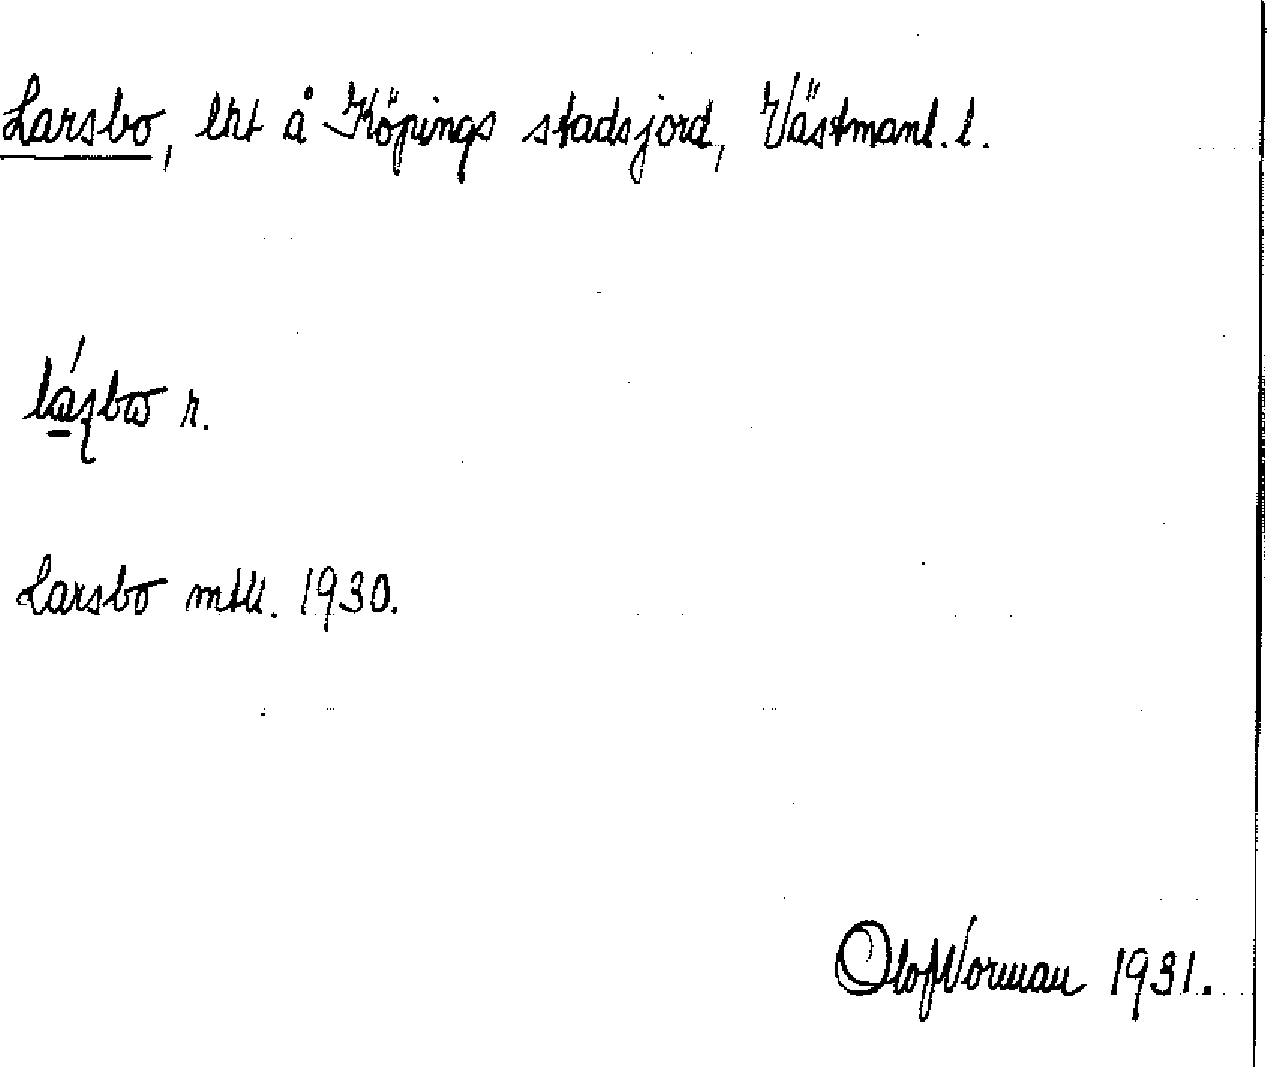 Larsbo, lht å Köpings stadsjord, Västmanl. l.
lázbω r.
Larsbo mtll. 1930.
Olof Norman 1931.